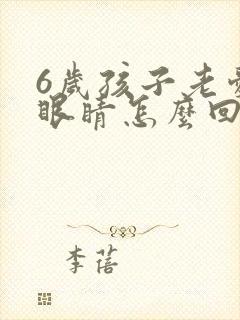 6歲孩子老
眼睛怎麼回
李蓓